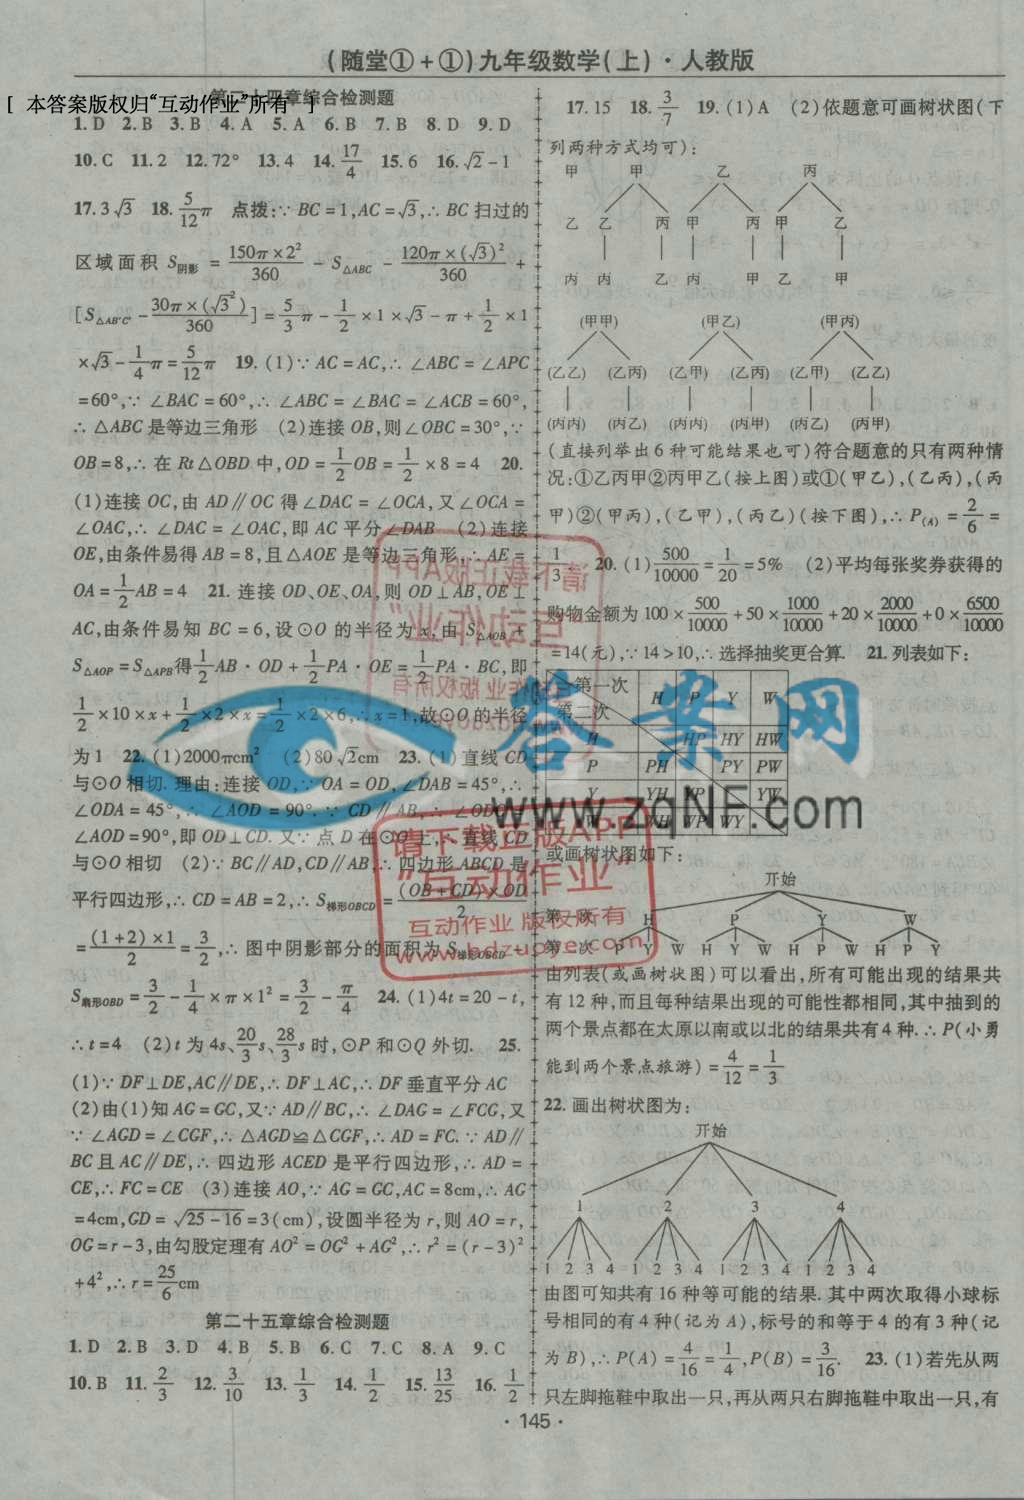 (随堂①+①)九年级数学(上)·人教版
[ 本答案版权归“互动作业”所有 ]
第二十四章综合检测题
1. D 2. B 3. B 4. A 5. A 6. B 7. B 8. D 9. D
10. C 11. 2 12. 72° 13. 4 14. 17/4 15. 6 16. √2-1
17. 3√3 18. 5/12π 点拨:∵BC=1,AC=√3,∴BC扫过的
区域面积 S阴影 = 150π×2²/360 - S△ABC - 120π×(√3)²/360 +
[S△AB'C' - 30π×(√3²)/360] = 5/3π - 1/2×1×√3 - π + 1/2×1
×√3 - 1/4π = 5/12π 19. (1)∵AC=AC,∴∠ABC=∠APC
=60°,∵∠BAC=60°,∴∠ABC=∠BAC=∠ACB=60°,
∴△ABC是等边三角形 (2)连接OB,则∠OBC=30°,∵
OB=8,∴在Rt△OBD中,OD=1/2OB=1/2×8=4 20.
(1)连接OC,由AD∥OC得∠DAC=∠OCA,又∠OCA=
∠OAC,∴∠DAC=∠OAC,即AC平分∠DAB (2)连接
OE,由条件易得AB=8,且△AOE是等边三角形,∴AE=
OA=1/2AB=4 21. 连接OD、OE、OA,则OD⊥AB,OE⊥
AC,由条件易知BC=6,设⊙O的半径为x,由S△AOB+
S△AOP=S△APB得1/2AB·OD+1/2PA·OE=1/2PA·BC,即
1/2×10×x+1/2×2×x=1/2×2×6,∴x=1,故⊙O的半径
为1 22. (1)2000πcm² (2)80√2cm 23. (1)直线CD
与⊙O相切.理由:连接OD,∵OA=OD,∠DAB=45°,∴
∠ODA=45°,∴∠AOD=90°.∵CD∥AB,∴∠ODC=
∠AOD=90°,即OD⊥CD.又∵点D在⊙O上,∴直线CD
与⊙O相切 (2)∵BC∥AD,CD∥AB,∴四边形ABCD是
平行四边形,∴CD=AB=2,∴S梯形OBCD=(OB+CD)×OD/2
=(1+2)×1/2=3/2,∴图中阴影部分的面积为S梯形OBCD-
S扇形OBD=3/2-1/4×π×1²=3/2-π/4 24. (1)4t=20-t,
∴t=4 (2)t为4s、20/3s、28/3s时,⊙P和⊙Q外切. 25.
(1)∵DF⊥DE,AC∥DE,∴DF⊥AC,∴DF垂直平分AC
(2)由(1)知AG=GC,又∵AD∥BC,∴∠DAG=∠FCG,又
∵∠AGD=∠CGF,∴△AGD≌△CGF,∴AD=FC.∵AD∥
BC且AC∥DE,∴四边形ACED是平行四边形,∴AD=
CE,∴FC=CE (3)连接AO,∵AG=GC,AC=8cm,∴AG
=4cm,GD=√25-16=3(cm),设圆半径为r,则AO=r,
OG=r-3,由勾股定理有AO²=OG²+AG²,∴r²=(r-3)²
+4²,∴r=25/6cm
第二十五章综合检测题
1. D 2. B 3. D 4. B 5. B 6. C 7. C 8. A 9. C
10. B 11. 2/3 12. 3/10 13. 1/3 14. 1/2 15. 13/25 16. 1/2
17. 15 18. 3/7 19. (1)A (2)依题意可画树状图(下
列两种方式均可):
甲 甲 乙 丙
乙 乙 丙 甲 丙 甲 乙
丙 丙 乙 丙 甲 乙 甲
(甲甲) (甲乙) (甲丙)
(乙乙) (乙丙) (乙甲) (乙丙) (乙甲) (乙乙)
(丙丙) (丙乙) (丙丙) (丙甲) (丙乙) (丙甲)
(直接列举出6种可能结果也可)符合题意的只有两种情
况:①乙丙甲②丙甲乙(按上图)或①(甲乙),(乙丙),(丙
甲)②(甲丙),(乙甲),(丙乙)(按下图),∴P(A)=2/6=
1/3. 20. (1)500/10000=1/20=5% (2)平均每张奖券获得的
购物金额为100×500/10000+50×1000/10000+20×2000/10000+0×6500/10000
=14(元),∵14>10,∴选择抽奖更合算. 21. 列表如下:
第一次 第二次 H P Y W
H HP HY HW
P PH PY PW
Y YH YP YW
W WH WP WY
或画树状图如下:
开始
第一次 H P Y W
第二次 P Y W H Y W H P W H P Y
由列表(或画树状图)可以看出,所有可能出现的结果共
有12种,而且每种结果出现的可能性都相同,其中抽到的
两个景点都在太原以南或以北的结果共有4种.∴P(小勇
能到两个景点旅游)=4/12=1/3
22. 画出树状图为:
开始
1 2 3 4
1 2 3 4 1 2 3 4 1 2 3 4 1 2 3 4
由图可知共有16种等可能的结果.其中两次取得小球标
号相同的有4种(记为A),标号的和等于4的有3种(记
为B),∴P(A)=4/16=1/4,P(B)=3/16. 23. (1)若先从两
只左脚拖鞋中取出一只,再从两只右脚拖鞋中取出一只,有
·145·
答案网
www.zqNF.com
请下载正版APP
“互动作业”
互动作业 版权所有
www.hdzuoye.com